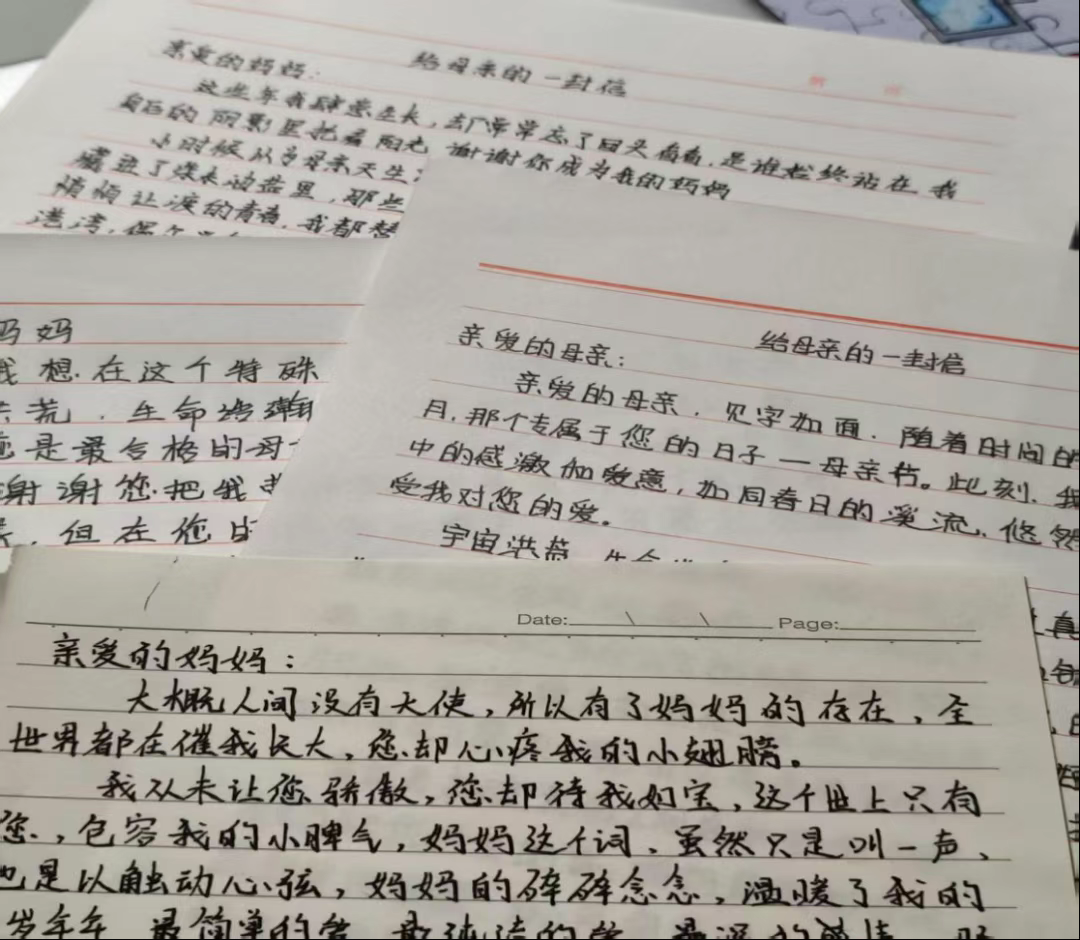 给母亲的一封信
亲爱的妈妈:
这些年我肆意生长,却常常忘了回头看看,是谁始终站在我
身后的阴影里把着阳光 谢谢你成为我的妈妈
小时候从
那些
让渡的青春,我都想
港湾,偶尔
妈妈
我想.在这个特殊
洪荒.生命浩瀚
您是最合格的母
谢谢您.把我
,但在您
给母亲的一封信
亲爱的母亲:
亲爱的母亲.见字如面.随着时间的
月.那个专属于您的日子—母亲节。此刻.我
中的感激和爱意,如同春日的溪流.悠然
受我对您的爱。
宇宙洪荒
Date: Page:
亲爱的妈妈:
大概人间没有天使,所以有了妈妈的存在,全
世界都在催我长大,您却心疼我的小翅膀。
我从未让您骄傲,您却待我如宝,这个世上只有
您,包容我的小脾气,妈妈这个词、虽然只是叫一声、
也是以触动心弦,妈妈的碎碎念念,温暖了我的
岁年年 最简单的 最纯洁的 最深的